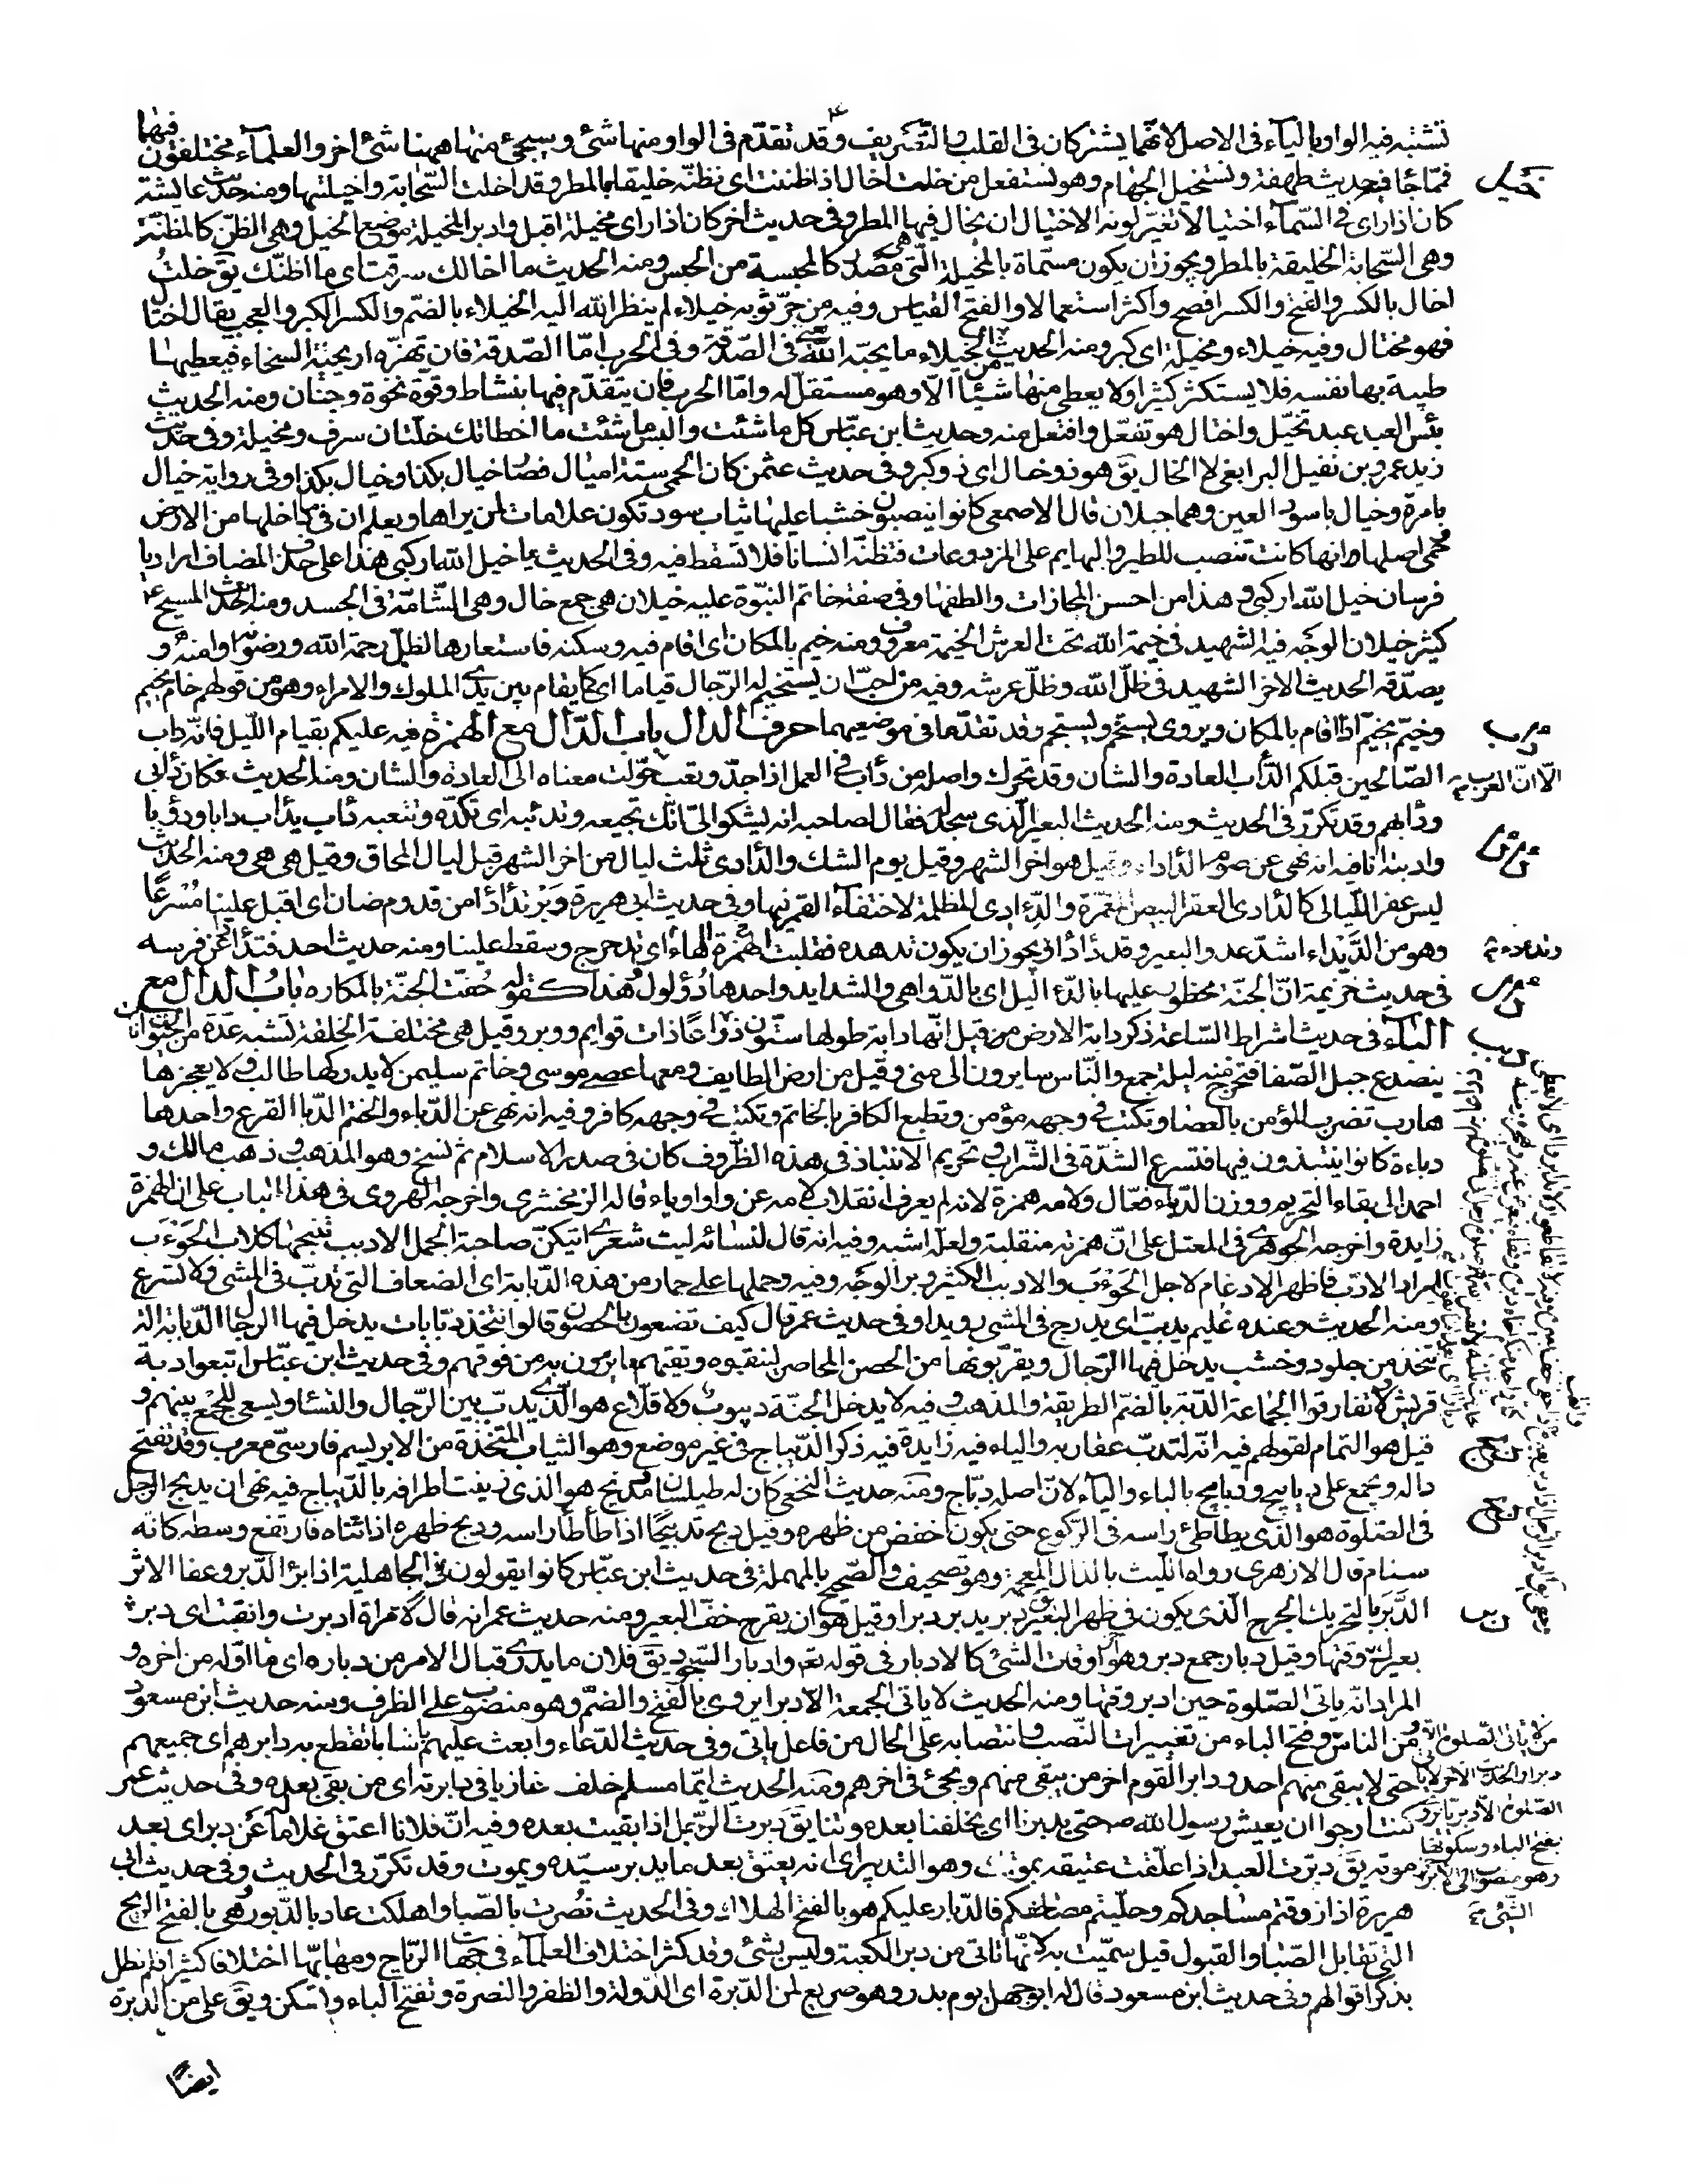 تشتبه فيه الواو بالياء فى الاصل لانهما يشتركان فى القلب والتصريف وقد تقدم فى الواو منها شئ وسيجئ منها ههنا شئ اخر والعلماء مختلفون فيها
خيل
فمما جاء فيه حديث طهفة ونستخيل الجهام وهو نستفعل من خلت اخال اذا ظننت اى نظنه خليقا بالمطر وقد اخلت السحابة واخيلتها ومنه حديث عايشة
كان اذا راى فى السماء اختيالا تغير لونه الاختيال ان يخال فيها المطر وفى حديث اخر كان اذا راى مخيلة اقبل وادبر المخيلة موضع الخيل وهى الظن كالمظنة
وهى السحابة الخليقة بالمطر ويجوز ان يكون مسماة بالمخيلة التى هى مصدر كالمحبسة من الحبس ومنه الحديث ما اخالك سرقت اى ما اظنك يق خلت
اخال بالكسر والفتح والكسر افصح واكثر استعمالا والفتح القياس وفيه من جر ثوبه خيلاء لم ينظر الله اليه الخيلاء بالضم والكسر الكبر والعجب يقال اختال
فهو مختال وفيه خيلاء ومخيلة اى كبر ومنه الحديث من الخيلاء ما يحبه الله يعنى فى الصدقة وفى الحرب اما الصدقة فان تهزه اريحية السخاء فيعطيها
طيبة بها نفسه فلا يستكثر كثيرا ولا يعطى منها شيئا الا وهو مستقل له واما الحرب فان يتقدم فيها بنشاط وقوة نخوة وجنان ومنه الحديث
بئس العبد عبد تخيل واختال هو تفعل وافتعل منه وحديث ابن عباس كل ما شئت والبس ما شئت ما اخطاتك خلتان سرف ومخيلة وفى حديث
زيد عمرو بن نفيل البر ابغى لا الخال يق هو ذو خال اى ذو كبر وفى حديث عثمن كان الحمى ستة اميال فصار خيال بكذا وخيال بكذا وفى رواية خيال
بامرة وخيال باسود العين وهما جبلان قال الاصمعى كانوا ينصبون خشبا عليها ثياب سود تكون علامات لمن يراها ويعلم ان فى داخلها من الارض
حمى اصلها انها كانت تنصب للطير والبهايم على المزروعات فتظنه انسانا فلا تسقط فيه وفى الحديث يا خيل الله اركبى هذا على حذف المضاف اراد يا
فرسان خيل الله اركبى وهذا من احسن المجازات والطفها وفى صفة خاتم النبوة عليه خيلان هى جمع خال وهى الشامة فى الجسد ومنه الحديث المسيح ع
كثير خيلان الوجه فيه الشهيد فى خيمة الله تحت العرش الخيمة معروف ومنه خيم بالمكان اى اقام فيه وسكنه فاستعارها لظل رحمة الله ورضوانه وامنه و
يصدقه الحديث الاخر الشهيد فى ظل الله وظل عرشه وفيه من احب ان يستخيم له الرجال قياما اى كما يقام بين يدى الملوك والامراء وهو من قولهم خام يخيم
وخيم يخيم اذا اقام بالمكان ويروى يستخم ويستجم وقد تقدما فى موضعيهما حرف الدال باب الدال مع الهمزة فيه عليكم بقيام الليل فانه داب
الصالحين قبلكم الداب العادة والشان وقد تحرك واصله من داب فى العمل اذا جد وتعب حولت معناه الى العادة والشان ومنه الحديث فكان دأبى
الا ان العرب
ودأبهم وقد تكرر فى الحديث ومنه الحديث البعير الذى سجد له فقال لصاحبه انه ليشكو الى انك تجيعه وتدئبه اى تكده وتتعبه دأب يدأب دابا ودؤبا
وادبته انا فيه انه نهى عن صوم الداداء وقيل هو اخر الشهر وقيل يوم الشك والدادى ثلث ليال من اخر الشهر قبل ليال المحاق وقيل هى هى ومنه الحديث
ليس عفر الليالى كالدادى العفر البيض المقمرة والدادى المظلمة لاختفاء القمر فيها وفى حديث ابى هريرة وبر تدأدأ من قدوم ضان اى اقبل علينا مسرعا
وهو من الديداء اشد عدو البعير وقد دأدأ ويجوز ان يكون تدهده فقلبت الهاء همزة اى تدحرج وسقط علينا ومنه حديث احد فتدأدأ عن فرسه
فى حديث خزيمة ان الجنة محظور عليها بالدءاليل اى بالدواهى والشدايد واحدها دؤلول وهذا كقوله حفت الجنة بالمكاره باب الدال مع
الباء فى حديث اشراط الساعة ذكر دابة الارض قيل انها دابة طولها ستون ذراعا ذات قوايم ووبر وقيل هى مختلفة الخلقة تشبه عدة من الحيوانات
دبب
ينصدع جبل الصفا فتخرج منه ليلة جمع والناس سايرون الى منى وقيل من ارض الطايف ومعها عصى موسى وخاتم سليمن لا يدركها طالب ولا يعجزها
هارب تضرب المؤمن بالعصا وتكتب فى وجهه مؤمن وتطبع الكافر بالخاتم وتكتب فى وجهه كافر وفيه انه نهى عن الدباء والحنتم الدباء القرع واحدها
دباءة كانوا ينتبذون فيها فتسرع الشدة فى الشراب وتحريم الانتباذ فى هذه الظروف كان فى صدر الاسلام ثم نسخ وهو المذهب وذهب مالك و
احمد الى بقاء التحريم ووزن الدباء فعال ولامه همزة لانه لم يعرف انقلاب لامه عن واو او ياء قاله الزمخشرى واخرجه الهروى فى هذا الباب على ان الهمزة
زايدة واخرجه الجوهرى فى المعتل على ان همزته منقلبة ولعله اشبه وفيه انه قال لنسائه ليت شعرى ايتكن صاحبة الجمل الادبب تنبحها كلاب الحوءب
اراد الادب فاظهر الادغام لاجل الحوءب والادب الكثير وبر الوجه وفيه وحملها على حمار من هذه الدبابة اى الضعاف التى تدب فى المشى ولا تسرع
ومنه الحديث وعنده غليم يدبب اى يدرج فى المشى رويدا وفى حديث عمر قال كيف تصنعون بالحصون قالوا نتخذ دبابات يدخل فيها الرجال الدبابة الة
تتخذ من جلود وخشب يدخل فيها الرجال ويقربونها من الحصن المحاصر لينقبوه وتقيهم ما يرمون به من فوقهم وفى حديث ابن عباس اتبعوا دبة
قريش ولا تفارقوا الجماعة الدبة بالضم الطريقة والمذهب وفيه لا يدخل الجنة ديبوب ولا قلاع هو الذى يدب بين الرجال والنساء ويسعى للجمع بينهم و
قيل هو النمام لقولهم فيه انه لتدب عقاربه والياء فيه زايدة فيه ذكر الديباج فى غير موضع وهو الثياب المتخذة من الابريسم فارسى معرب وقد تفتح
دبج
داله ويجمع على ديابيج ودبابيج بالباء والياء لان اصله دباج ومنه حديث النخعى كان له طيلسان مدبج هو الذى زينت اطرافه بالديباج فيه نهى ان يدبح الرجل
دبح
فى الصلوة هو الذى يطاطئ راسه فى الركوع حتى يكون اخفض من ظهره وقيل دبح تدبيحا اذا طأطأ راسه ودبح ظهره اذا ثناه فارتفع وسطه كانه
سنام قال الازهرى رواه الليث بالذال المعجمة وهو تصحيف والصحيح بالمهملة فى حديث ابن عباس كانوا يقولون فى الجاهلية اذا برأ الدبر وعفا الاثر
الدبر بالتحريك الجرح الذى يكون فى ظهر البعير يق دبر يدبر دبرا وقيل هو ان يقرح خف البعير ومنه حديث عمر انه قال لامراة ادبرت وانقبت اى دبر
بعيرك وقتها وقيل دبار جمع دبر وهو اخر اوقات الشئ كالادبار فى قوله تع وادبار السجود يق فلان ما يدرى قبال الامر من دباره اى ما اوله من اخره و
المراد انه ياتى الصلوة حين ادبر وقتها ومنه الحديث لا ياتى الجمعة الا دبرا يروى بالفتح والضم وهو منصوب على الظرف ومنه حديث ابن مسعود
من الناس وفتح الباء من تغييرات النصب وانتصابه على الحال من فاعل ياتى وفى حديث الدعاء وابعث عليهم باسا تقطع به دابرهم اى جميعهم
حتى لا يبقى منهم احد ودابر القوم اخر من يبقى منهم ويجئ فى اخرهم ومنه الحديث ايما مسلم خلف غازيا فى دابرته اى من بقى بعده وفى حديث عمر
كنت ارجو ان يعيش رسول الله ص حتى يدبرنا اى يخلفنا بعد موتنا يق دبرت الرجل اذا بقيت بعده وفيه ان فلانا اعتق غلاما عن دبر اى بعد
موته يق دبرت العبد اذا علقت عتقه بموتك وهو التدبير اى انه يعتق بعد ما يدبر سيده ويموت وقد تكرر فى الحديث وفى حديث ابى
هريرة اذا زوقتم مساجدكم وحليتم مصاحفكم فالدبار عليكم هو بالفتح الهلاك وفى الحديث نصرت بالصبا واهلكت عاد بالدبور هى بالفتح الريح
التى تقابل الصبا والقبول قيل سميت به لانها تاتى من دبر الكعبة وليس بشئ وقد كثر اختلاف العلماء فى جهات الرياح ومهابها اختلافا كثيرا فلم نطل
بذكر اقوالهم وفى حديث ابن مسعود قال له ابو جهل يوم بدر وهو صريع لمن الدبرة اى الدولة والظفر والنصرة وتفتح الباء وتسكن ويق على من الدبرة
ايضا